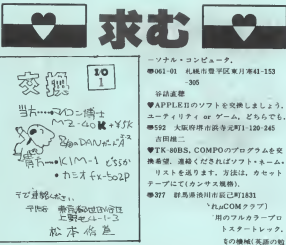 求む
交換
10
1
当方・・・マロン博士
MZ-40K+¥5K
貴方・・・KIM-1 どちらか
・カシオ fx-502P
松本
ーソナル・コンピュータ.
〒061-01 札幌市豊平区東月寒41-153
-305
谷詰直非
♥APPLEⅡのソフトを交換しましょう.
ユーティリティ or ゲーム, どちらでも.
〒592 大阪府堺市浜寺元町1-120-245
吉田雄二
♥TK-80BS, COMPOのプログラムを交
換希望. 連絡くだされば ソフト・ネーム・
リストを送ります. 方法は, カセット
テープにて(カンサス規格).
〒377 群馬県渋川市辰己町1631
COMクラブ)
用のフルカラープロ
トスタートレック.
の機械(英語の勉